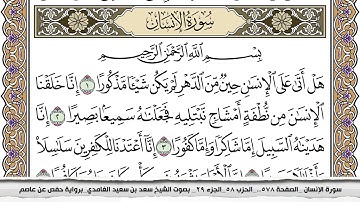 سورة الإنسان
بسم الله الرحمن الرحيم
هَلْ أَتَىٰ عَلَى الْإِنسَٰنِ حِينٌ مِّنَ الدَّهْرِ لَمْ يَكُن شَيْـًٔا مَّذْكُورًا ١ إِنَّا خَلَقْنَا
الْإِنسَٰنَ مِن نُّطْفَةٍ أَمْشَاجٍ نَّبْتَلِيهِ فَجَعَلْنَٰهُ سَمِيعًۢا بَصِيرًا ٢ إِنَّا
هَدَيْنَٰهُ السَّبِيلَ إِمَّا شَاكِرًا وَإِمَّا كَفُورًا ٣ إِنَّآ أَعْتَدْنَا لِلْكَٰفِرِينَ سَلَٰسِلَا۟
سورة الإنسان _الصفحة ٥٧٨_ الحزب ٥٨_الجزء ٢٩_ بصوت الشيخ سعد بن سعيد الغامدي_ برواية حفص عن عاصم